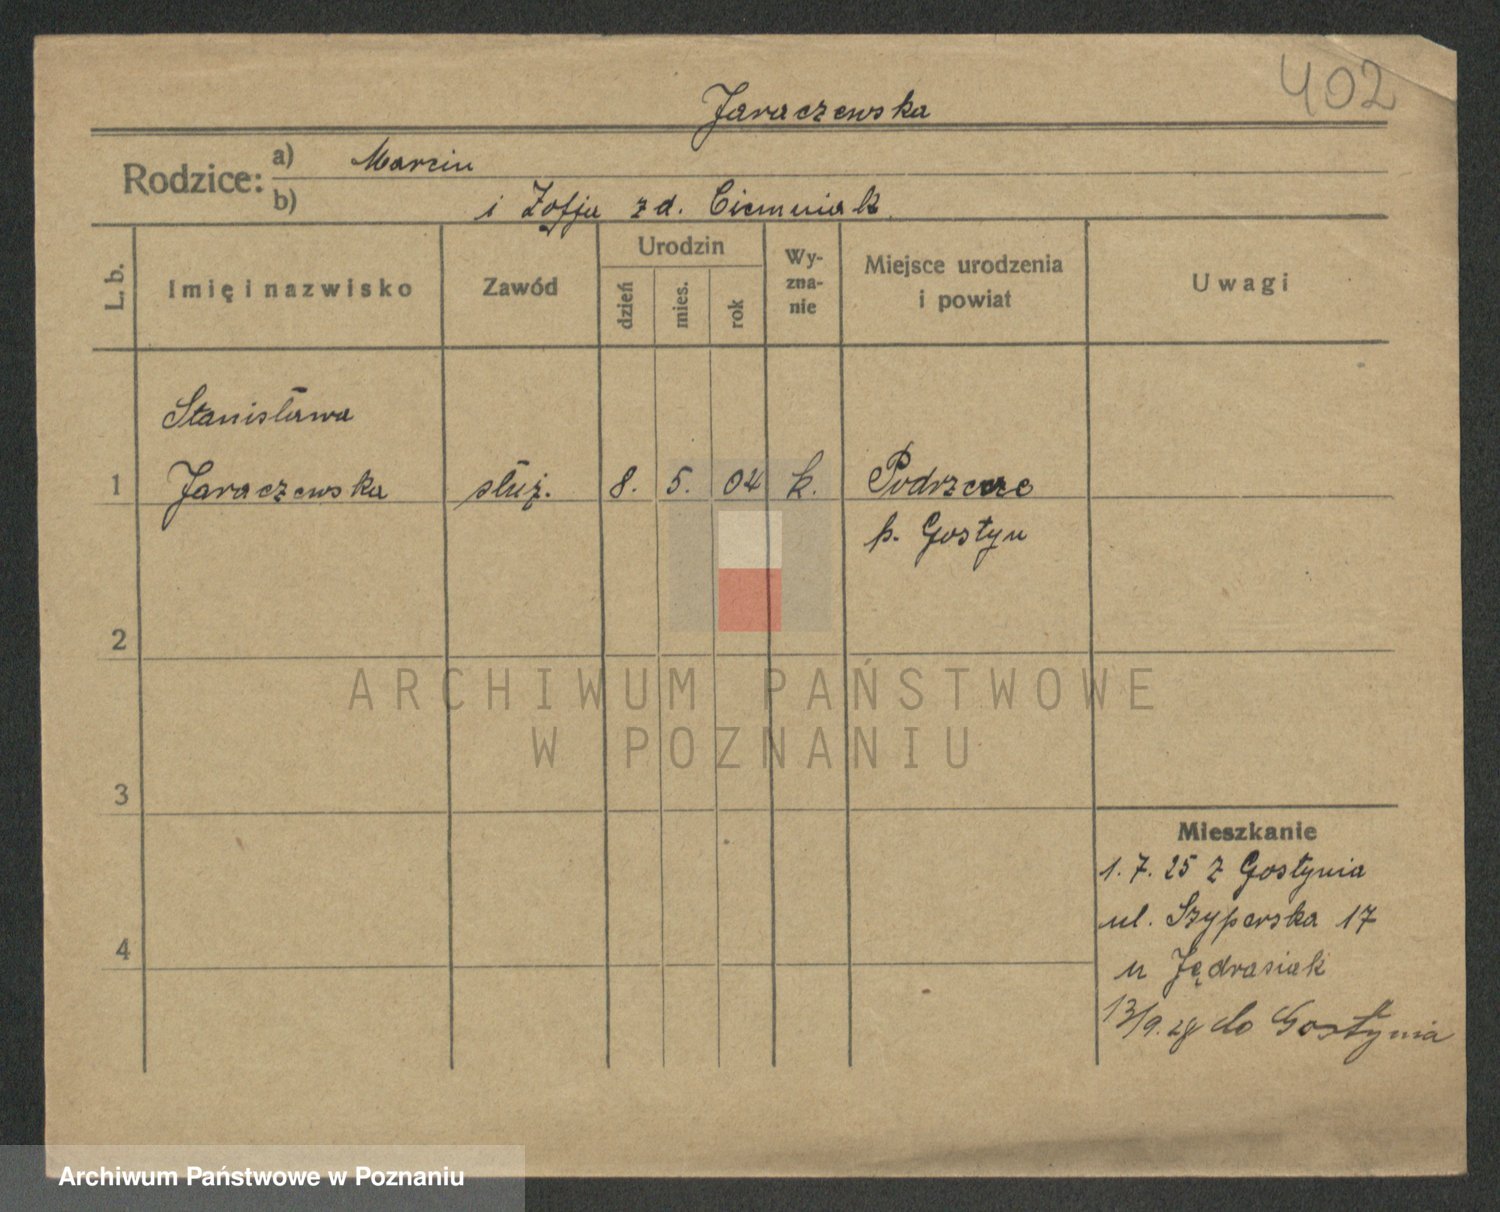 402
Jaraczewska
Rodzice: a) Marcin
b) i Zofja zd. Ciemniak
L. b.
Imię i nazwisko
Zawód
Urodzin
dzień
mies.
rok
Wy-
zna-
nie
Miejsce urodzenia
i powiat
Uwagi
Stanisława
1 Jaraczewska służ. 8. 5. 04 k. Podrzecze
p. Gostyn
2
3
4
Mieszkanie
1. 7. 25 z Gostynia
ul. Szyperska 17
u Jędrasiak
13/9. 28 do Gostynia
ARCHIWUM PAŃSTWOWE
W POZNANIU
Archiwum Państwowe w Poznaniu